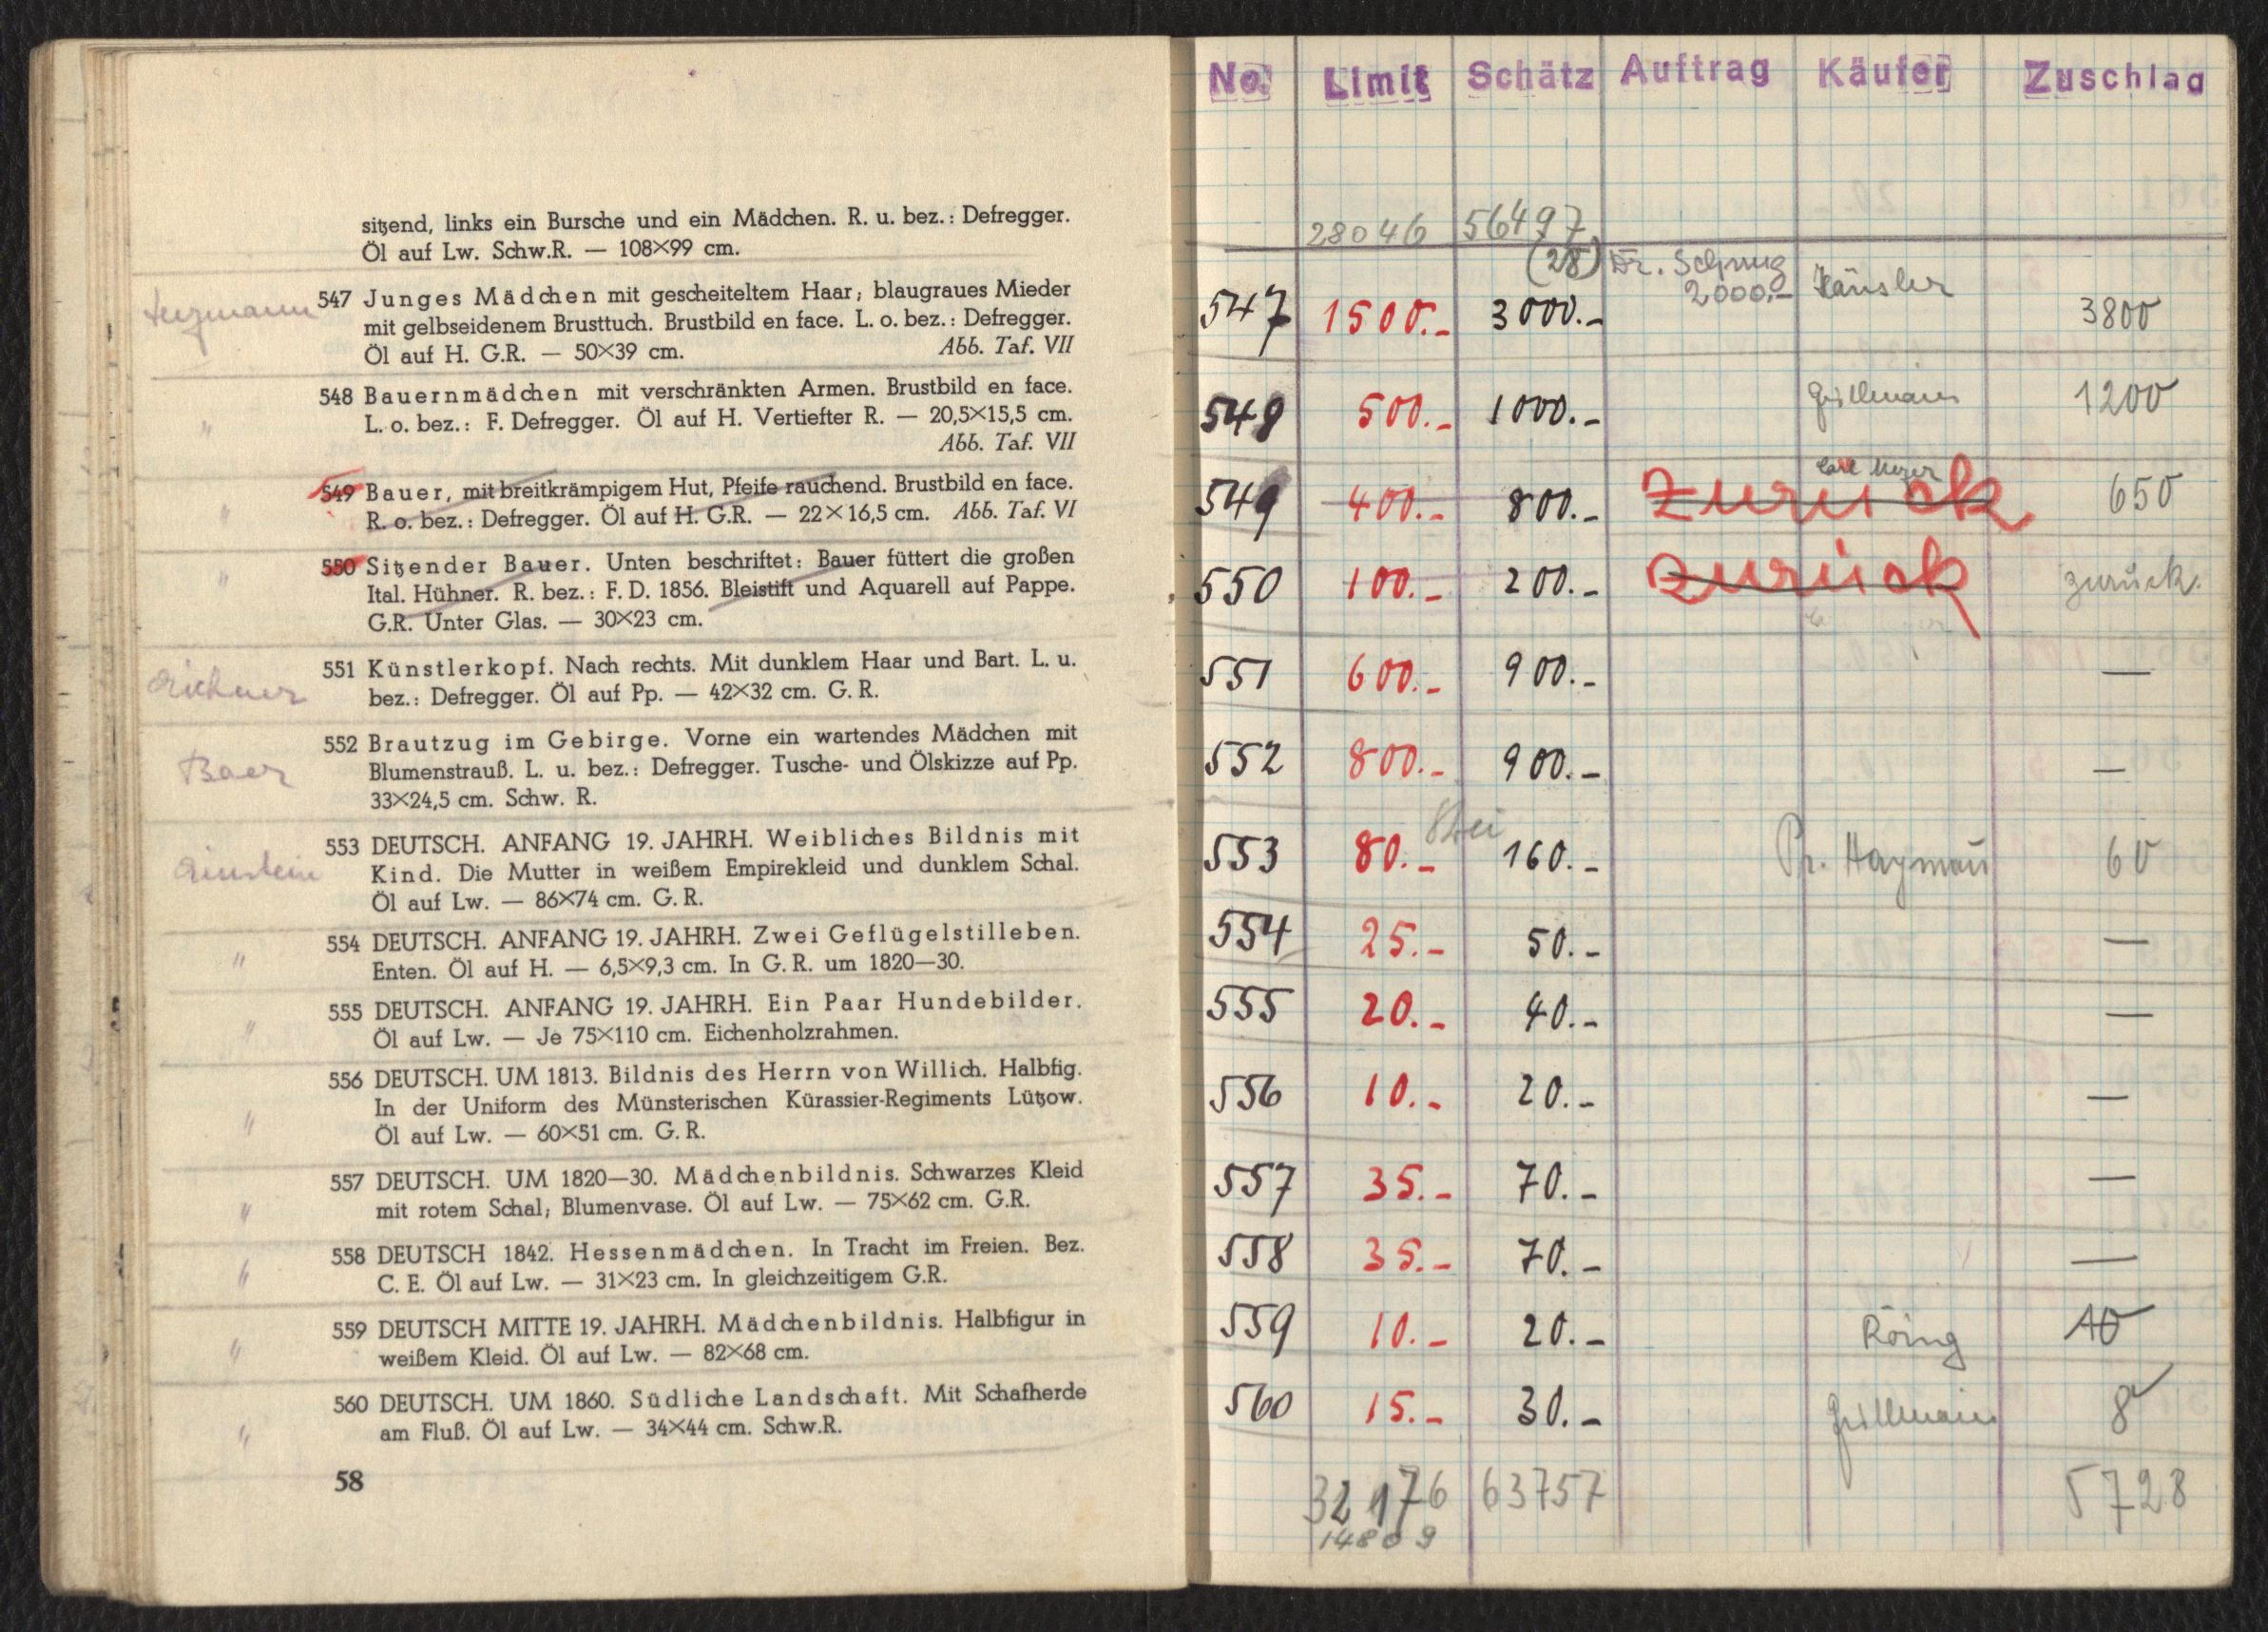 sitzend, links ein Bursche und ein Mädchen. R. u. bez.: Defregger.
Öl auf Lw. Schw.R. — 108×99 cm.
547 Junges Mädchen mit gescheiteltem Haar; blaugraues Mieder
mit gelbseidenem Brusttuch. Brustbild en face. L. o. bez.: Defregger.
Öl auf H. G.R. — 50×39 cm. Abb. Taf. VII
548 Bauernmädchen mit verschränkten Armen. Brustbild en face.
" L. o. bez.: F. Defregger. Öl auf H. Vertiefter R. — 20,5×15,5 cm.
Abb. Taf. VII
549 Bauer, mit breitkrämpigem Hut, Pfeife rauchend. Brustbild en face.
" R. o. bez.: Defregger. Öl auf H. G.R. — 22×16,5 cm. Abb. Taf. VI
550 Sitzender Bauer. Unten beschriftet: Bauer füttert die großen
" Ital. Hühner. R. bez.: F. D. 1856. Bleistift und Aquarell auf Pappe.
G.R. Unter Glas. — 30×23 cm.
551 Künstlerkopf. Nach rechts. Mit dunklem Haar und Bart. L. u.
bez.: Defregger. Öl auf Pp. — 42×32 cm. G. R.
552 Brautzug im Gebirge. Vorne ein wartendes Mädchen mit
Baer Blumenstrauß. L. u. bez.: Defregger. Tusche- und Ölskizze auf Pp.
33×24,5 cm. Schw. R.
553 DEUTSCH. ANFANG 19. JAHRH. Weibliches Bildnis mit
Einstein Kind. Die Mutter in weißem Empirekleid und dunklem Schal.
Öl auf Lw. — 86×74 cm. G. R.
554 DEUTSCH. ANFANG 19. JAHRH. Zwei Geflügelstilleben.
" Enten. Öl auf H. — 6,5×9,3 cm. In G. R. um 1820—30.
555 DEUTSCH. ANFANG 19. JAHRH. Ein Paar Hundebilder.
" Öl auf Lw. — Je 75×110 cm. Eichenholzrahmen.
556 DEUTSCH. UM 1813. Bildnis des Herrn von Willich. Halbfig.
" In der Uniform des Münsterischen Kürassier-Regiments Lützow.
Öl auf Lw. — 60×51 cm. G. R.
557 DEUTSCH. UM 1820—30. Mädchenbildnis. Schwarzes Kleid
" mit rotem Schal; Blumenvase. Öl auf Lw. — 75×62 cm. G.R.
558 DEUTSCH 1842. Hessenmädchen. In Tracht im Freien. Bez.
" C. E. Öl auf Lw. — 31×23 cm. In gleichzeitigem G.R.
559 DEUTSCH MITTE 19. JAHRH. Mädchenbildnis. Halbfigur in
" weißem Kleid. Öl auf Lw. — 82×68 cm.
560 DEUTSCH. UM 1860. Südliche Landschaft. Mit Schafherde
" am Fluß. Öl auf Lw. — 34×44 cm. Schw.R.
58
No. Limit Schätz Auftrag Käufer Zuschlag
28046 56497
(28) Dr.
2000.-
547 1500.- 3000.- 3800
548 500.- 1000.- 1200
549 400.- 800.- Zurück 650
550 100.- 200.- Zurück zurück.
551 600.- 900.- —
552 800.- 900.- —
553 80.- 160.- 60
554 25.- 50.- —
555 20.- 40.- —
556 10.- 20.- —
557 35.- 70.- —
558 35.- 70.- —
559 10.- 20.- Röing 10
560 15.- 30.- 8
32176 63757 5728
14809